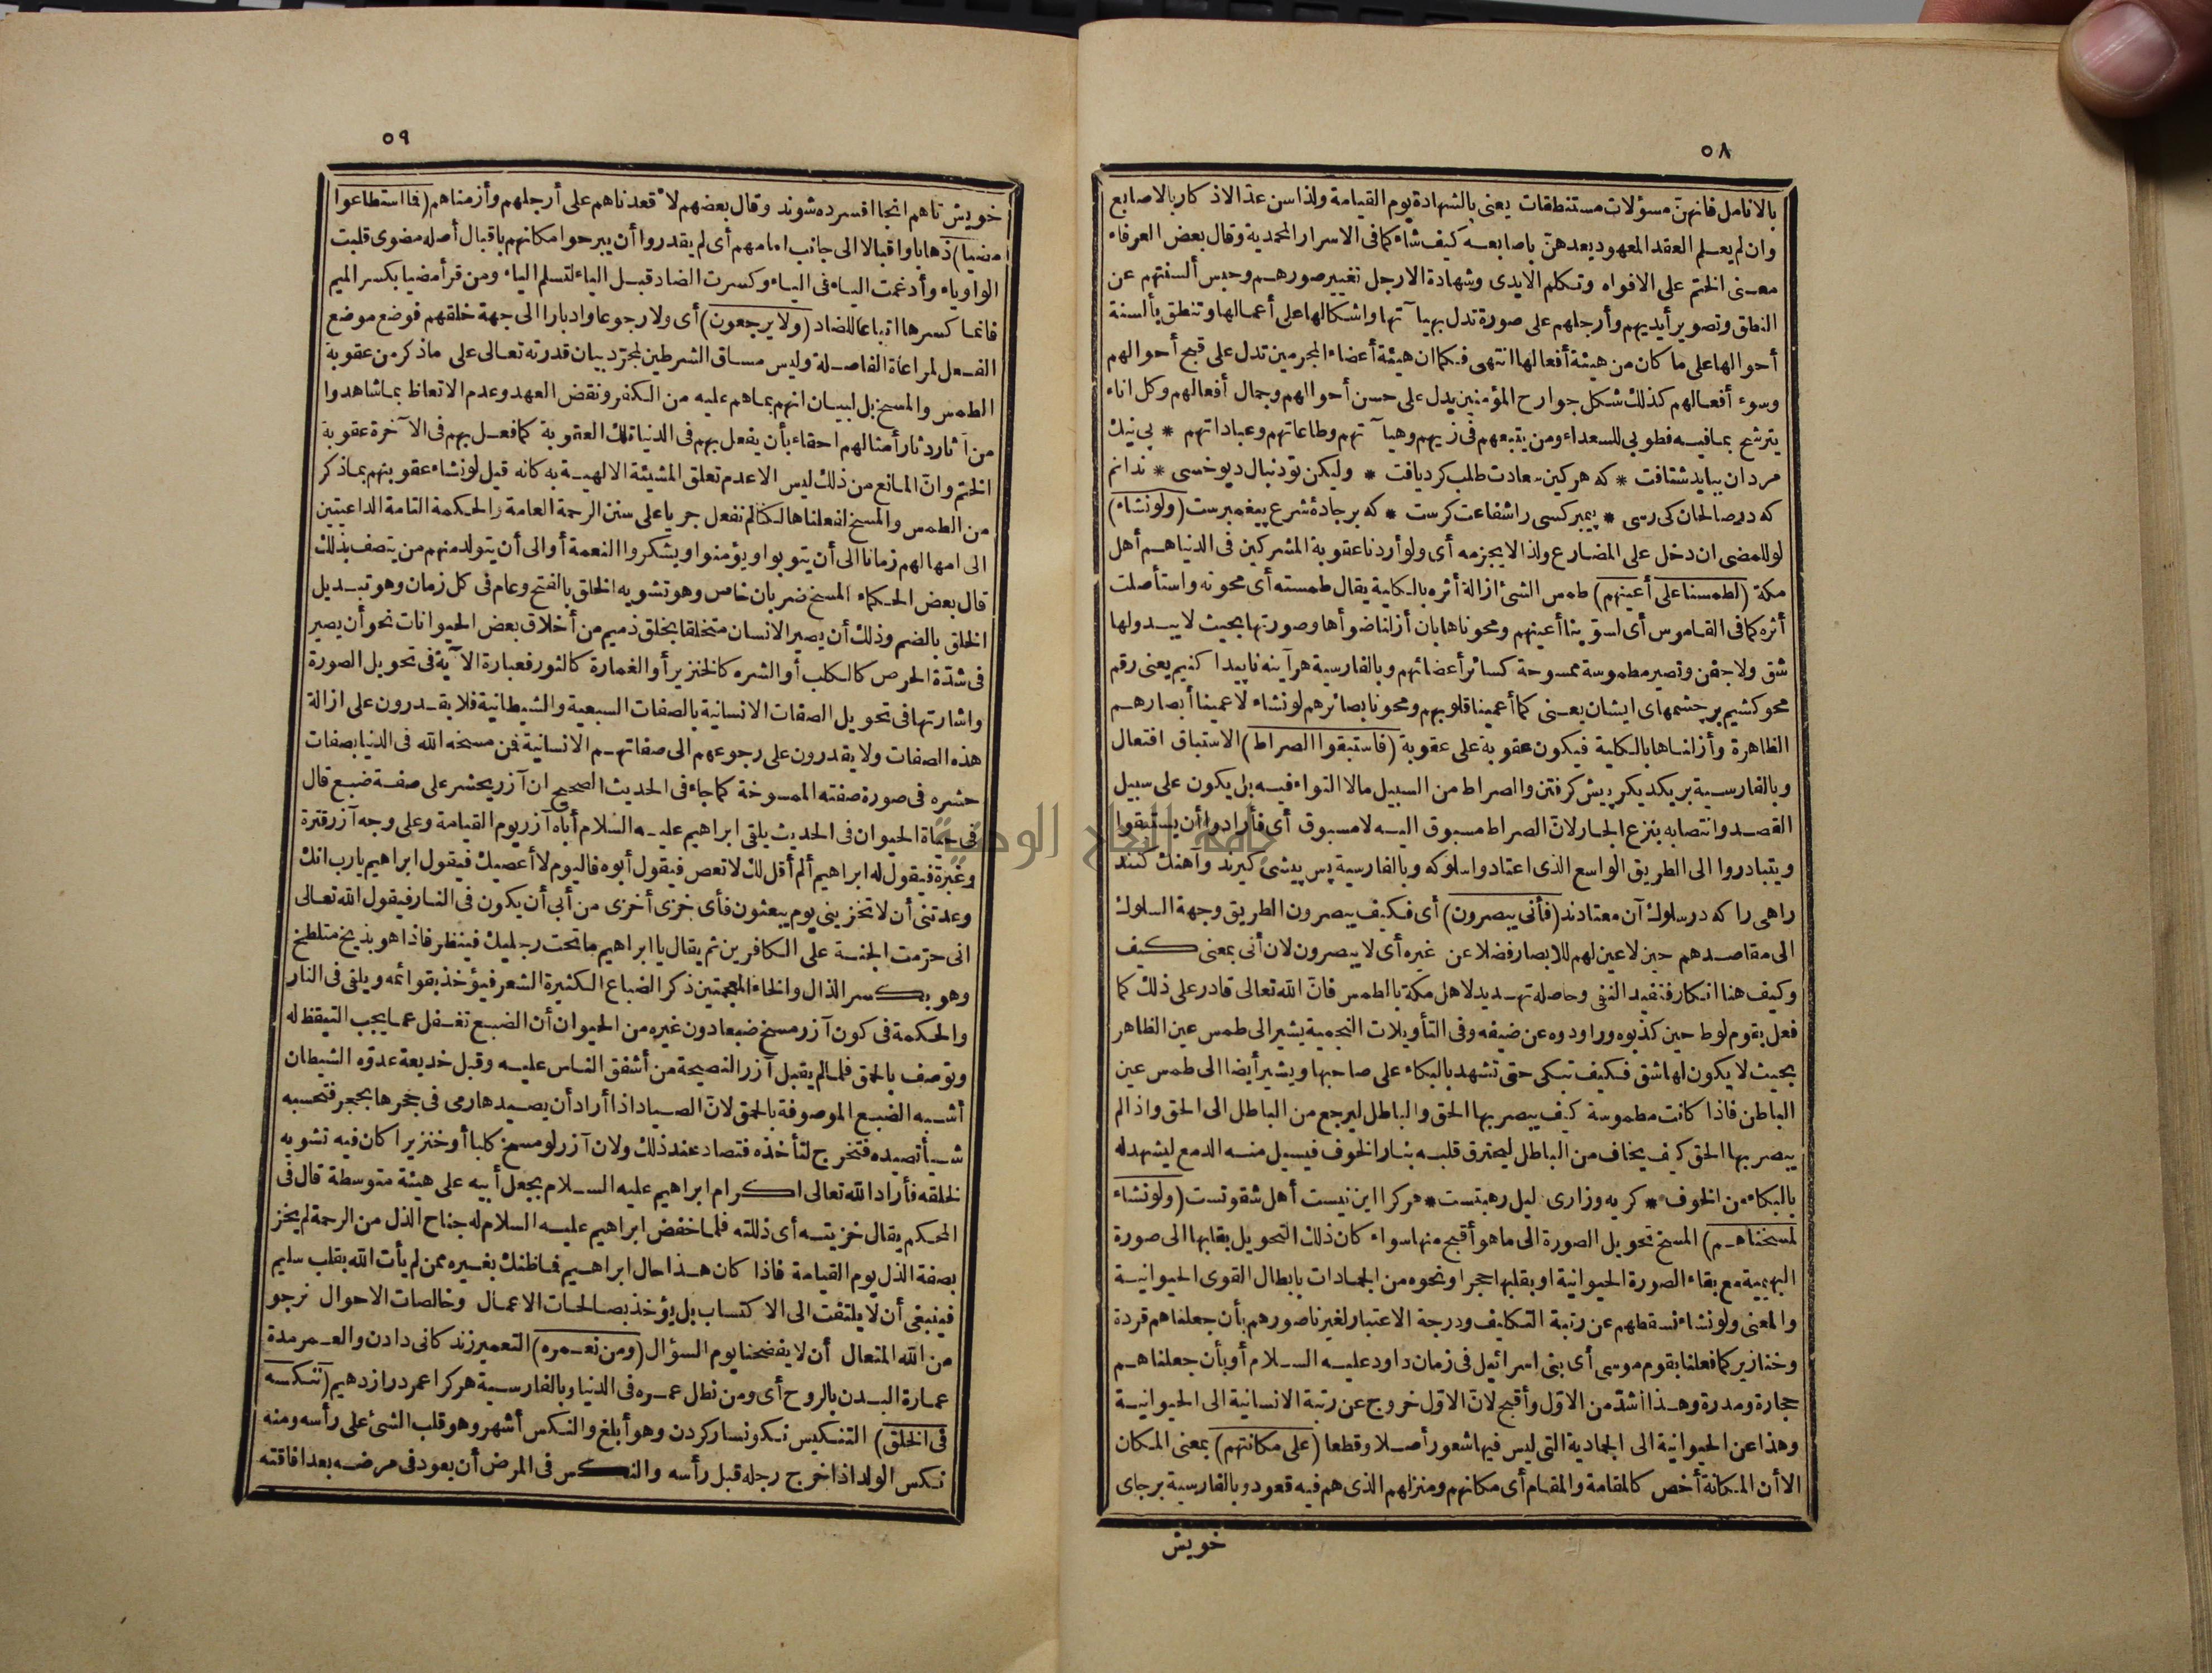 ٥٨
بالانامل فانهن مسؤلات مستنطقات يعنى بالشهادة يوم القيامة ولذا سن عد الاذكار بالاصابع
وان لم يعلم العقد المعهود يعدهن باصابعه كيف شاء كما فى الاسرار المحمدية وقال بعض العرفاء
معنى الختم على الافواه وتكلم الايدى وشهادة الارجل تغيير صورهم وحبس ألسنتهم عن
النطق وتصوير أيديهم وأرجلهم على صورة تدل بهيآتها واشكالها على أعمالها وتنطق بألسنة
أحوالها على ما كان من هيئة أفعالها انتهى فكما ان هيئة أعضاء المجرمين تدل على قبح أحوالهم
وسوء أفعالهم كذلك شكل جوارح المؤمنين يدل على حسن أحوالهم وجمال أفعالهم وكل اناء
يترشح بما فيه فطوبى للسعداء ومن يتبعهم فى زيهم وهيآتهم وطاعاتهم وعباداتهم * پى نيك
مردان ببايد شتافت * كه هركين سعادت طلب كرد يافت * وليكن تو دنبال ديو خسى * ندانم
كه در صالحان كى رسى * پيمبر كسى را شفاعت كرست * كه بر جادهٔ شرع پيغمبرست (ولو نشاء)
لو للمضى ان دخل على المضارع ولذا لا يجزمه أى ولو أردنا عقوبة المشركين فى الدنيا هم أهل
مكة (لطمسنا على أعينهم) طمس الشئ ازالة أثره بالكلية يقال طمسته أى محوته واستأصلت
أثره كما فى القاموس أى لسوّينا أعينهم ومحوناها بان أزلنا ضوأها وصورتها بحيث لا يبدو لها
شق ولا جفن وتصير مطموسة ممسوحة كسائر أعضائهم وبالفارسية هر آينه ناپيدا كنيم يعنى رقم
محو كشيم بر چشمهاى ايشان يعنى كما أعمينا قلوبهم ومحونا بصائرهم لو نشاء لاعمينا أبصارهم
الظاهرة وأزلناها بالكلية فيكون عقوبة على عقوبة (فاستبقوا الصراط) الاستباق افتعال
وبالفارسية بر يكديكر پيش كرفتن والصراط من السبيل مالا التواء فيه بل يكون على سبيل
القصد وانتصابه بنزع الجار لان الصراط مسبوق اليه لا مسبوق أى فأرادوا أن يستبقوا
ويتبادروا الى الطريق الواسع الذى اعتادوا سلوكه وبالفارسية پس پيشى كيرند وآهنك كنند
راهى را كه در سلوك آن معتادند (فأنى يبصرون) أى فكيف يبصرون الطريق وجهة السلوك
الى مقاصدهم حين لا عين لهم للابصار فضلا عن غيره أى لا يبصرون لان أنى بمعنى كيف
وكيف هنا انكار فتفيد النفى وحاصله تهديد لاهل مكة بالطمس فان الله تعالى قادر على ذلك كما
فعل بقوم لوط حين كذبوه وراودوه عن ضيفه وفى التأويلات النجمية يشير الى طمس عين الظاهر
بحيث لا يكون لها شق فكيف تبكى حتى تشهد بالبكاء على صاحبها ويشير أيضا الى طمس عين
الباطن فاذا كانت مطموسة كيف يبصر بها الحق والباطل ليرجع من الباطل الى الحق واذا لم
يبصر بها الحق كيف يخاف من الباطل ليحترق قلبه بنار الخوف فيسيل منه الدمع ليشهد له
بالبكاء من الخوف * كريه وزارى دليل رهبتست * هركرا اين نيست أهل شقوتست (ولو نشاء
لمسخناهم) المسخ تحويل الصورة الى ما هو أقبح منها سواء كان ذلك التحويل بقلبها الى صورة
البهيمية مع بقاء الصورة الحيوانية او بقلبها حجرا ونحوه من الجمادات بابطال القوى الحيوانية
والمعنى ولو نشاء نسقطهم عن رتبة التكليف ودرجة الاعتبار لغيرنا صورهم بأن جعلناهم قردة
وخنازير كما فعلنا بقوم موسى أى بنى اسرائيل فى زمان داود عليه السلام أو بأن جعلناهم
حجارة ومدرة وهذا أشد من الاول وأقبح لان الاول خروج عن رتبة الانسانية الى الحيوانية
وهذا عن الحيوانية الى الجمادية التى ليس فيها شعور أصلا وقطعا (على مكانتهم) بمعنى المكان
الا أن المكانة أخص كالمقامة والمقام أى مكانهم ومنزلهم الذى هم فيه قعود وبالفارسية برجاى
خويش
٥٩
خويش تا هم انجا افسرده شوند وقال بعضهم لأقعدناهم على أرجلهم وأزمناهم (فما استطاعوا
مضيا) ذهابا واقبالا الى جانب امامهم أى لم يقدروا أن يبرحوا مكانهم باقبال أصله مضوى قلبت
الواو ياء وأدغمت الياء فى الياء وكسرت الضاد قبل الياء لتسلم الياء ومن قرأ مضيا بكسر الميم
فانما كسرها اتباعا للضاد (ولا يرجعون) أى ولا رجوعا وادبارا الى جهة خلقهم فوضع موضع
الفعل لمراعاة الفاصلة وليس مساق الشرطين لمجرد بيان قدرته تعالى على ما ذكر من عقوبة
الطمس والمسخ بل لبيان انهم بما هم عليه من الكفر ونقض العهد وعدم الاتعاظ بما شاهدوا
من آثار دثار أمثالهم احقاء بأن يفعل بهم فى الدنيا تلك العقوبة كما فعل بهم فى الآخرة عقوبة
الختم وان المانع من ذلك ليس الا عدم تعلق المشيئة الالهية به كانه قيل لو نشاء عقوبتهم بما ذكر
من الطمس والمسخ لفعلناها لكنا لم نفعل جريا على سنن الرحمة العامة والحكمة التامة الداعيتين
الى امهالهم زمانا الى أن يتوبوا ويؤمنوا ويشكروا النعمة أو الى أن يتولد منهم من يتصف بذلك
قال بعض الحكماء المسخ ضربان خاص وهو تشويه الخلق بالفتح وعام فى كل زمان وهو تبديل
الخلق بالضم وذلك أن يصير الانسان متخلقا بخلق ذميم من أخلاق بعض الحيوانات نحو أن يصير
فى شدة الحرص كالكلب أو الشره كالخنزير أو الغمارة كالثور فعبارة الآية فى تحويل الصورة
واشارتها فى تحويل الصفات الانسانية بالصفات السبعية والشيطانية فلا يقدرون على ازالة
هذه الصفات ولا يقدرون على رجوعهم الى صفاتهم الانسانية فمن مسخه الله فى الدنيا بصفات
حشره فى صورة صفته الممسوخة كما جاء فى الحديث الصحيح ان آزر يحشر على صفة ضبع قال
فى حياة الحيوان فى الحديث يلقى ابراهيم عليه السلام أباه آزر يوم القيامة وعلى وجه آزر قترة
وغبرة فيقول له ابراهيم ألم أقل لك لا تعص فيقول أبوه فاليوم لا أعصيك فيقول ابراهيم يارب انك
وعدتنى أن لا تخزينى يوم يبعثون فأى خزى أخزى من أبى أن يكون فى النار فيقول الله تعالى
انى حرمت الجنة على الكافرين ثم يقال يا ابراهيم ما تحت رجليك فينظر فاذا هو بذيخ متلطخ
وهو بكسر الذال والخاء المعجمتين ذكر الضباع الكثيرة الشعر فيؤخذ بقوائمه ويلقى فى النار
والحكمة فى كون آزر مسخ ضبعا دون غيره من الحيوان أن الضبع تغفل عما يجب التيقظ له
وتوصف بالحمق فلما لم يقبل آزر النصيحة من أشفق الناس عليه وقبل خديعة عدوه الشيطان
أشبه الضبع الموصوفة بالحمق لان الصياد اذا أراد أن يصيدها رمى فى جحرها بحجر فتحسبه
شيأ تصيده فتخرج لتأخذه فتصاد عند ذلك ولان آزر لو مسخ كلبا أو خنزيرا كان فيه تشويه
لخلقه فأراد الله تعالى اكرام ابراهيم عليه السلام بجعل أبيه على هيئة متوسطة قال فى
المحكم يقال خزيته أى ذللته فلما خفض ابراهيم عليه السلام له جناح الذل من الرحمة لم يخز
بصفة الذل يوم القيامة فاذا كان هذا حال ابراهيم فما ظنك بغيره ممن لم يأت الله بقلب سليم
فينبغى أن لا يلتفت الى الاكتساب بل يؤخذ بصالحات الاعمال وخالصات الاحوال نرجو
من الله المتعال أن لا يفضحنا يوم السؤال (ومن نعمره) التعمير زندكانى دادن والعمر مدة
عمارة البدن بالروح أى ومن نطل عمره فى الدنيا وبالفارسية هركرا عمر دراز دهيم (ننكسه
فى الخلق) التنكيس نكونسار كردن وهو أبلغ والنكس أشهر وهو قلب الشئ على رأسه ومنه
نكس الولد اذا خرج رجله قبل رأسه والنكس فى المرض أن يعود فى مرضه بعد افاقته
جامعة النجاح الوطنية